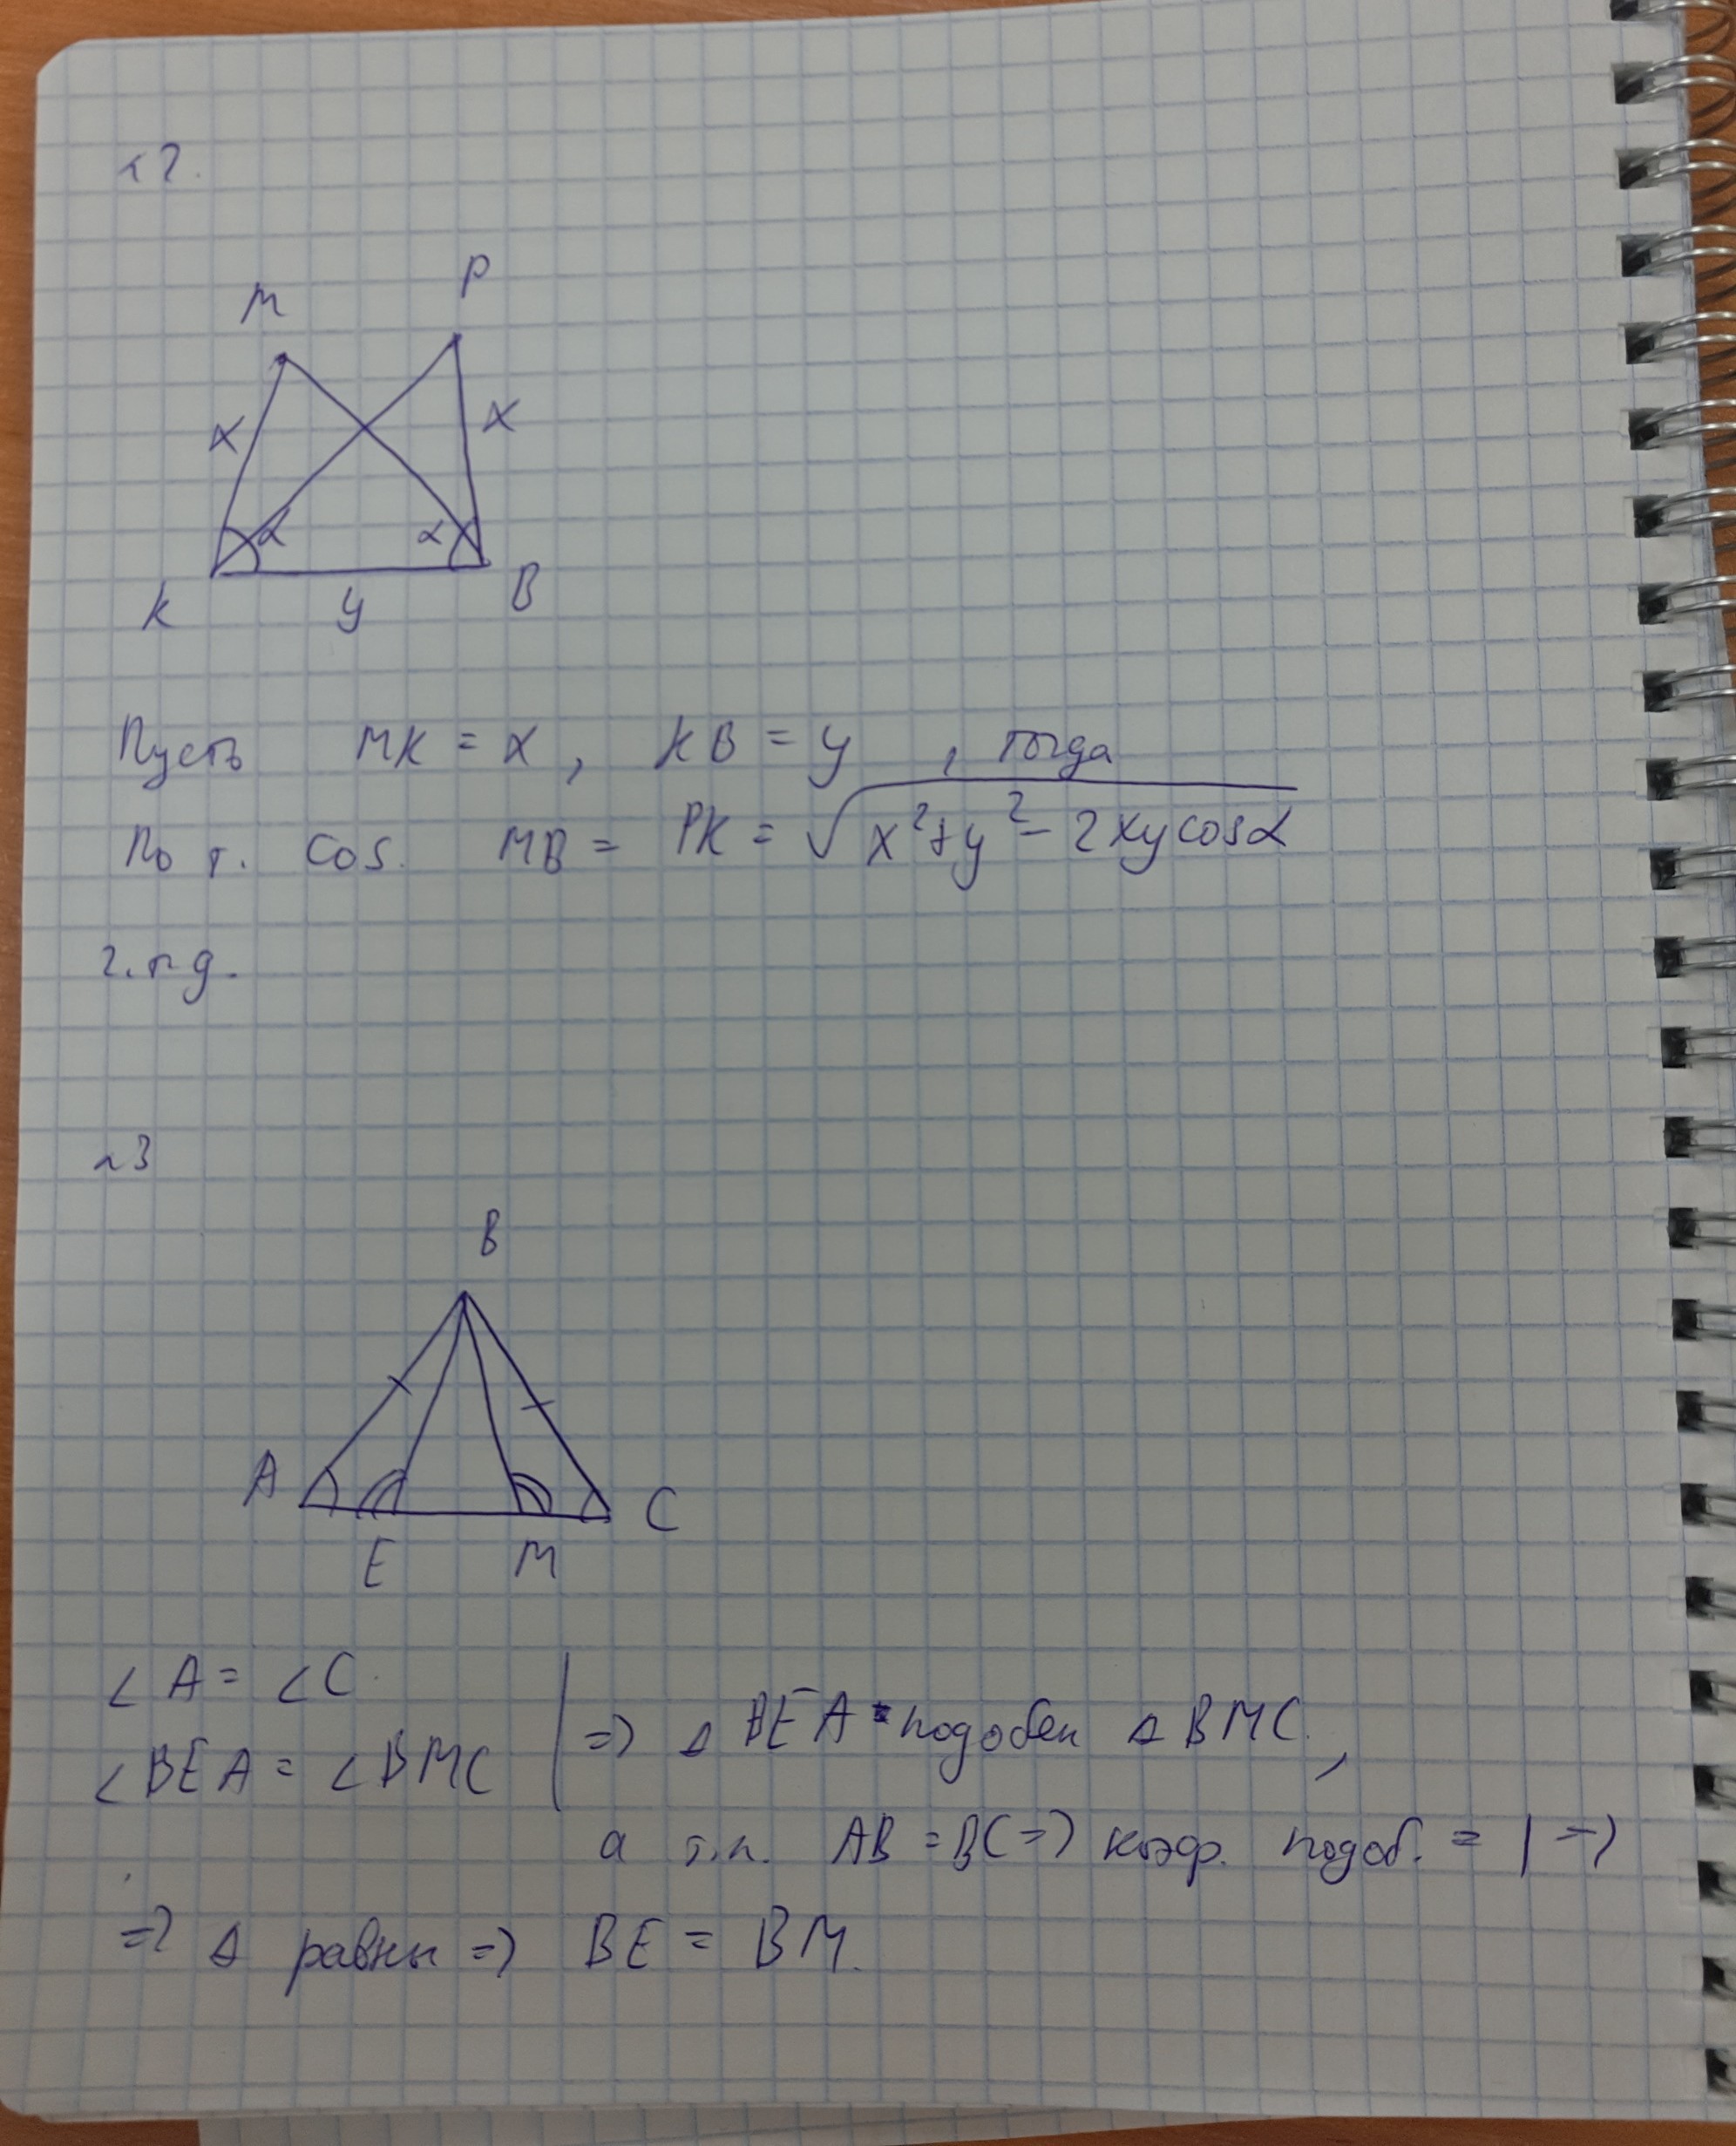 №2.
M P
x x
α α
K y B
Пусть MK = x, KB = y, тогда
По т. cos. MB = PK = √x²+y²-2xycosα
ч.т.д.
№3
B
A C
E M
∠A = ∠C.
∠BEA = ∠BMC
=> △BEA подобен △BMC,
а т.к. AB = BC => коэф. подоб. = 1 =>
=> △ равны => BE = BM.